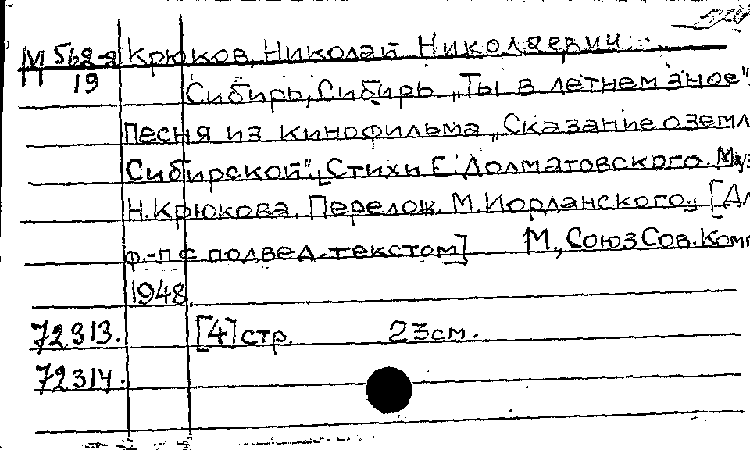 М 562-я Крюков, Николай Николаевич
19
Сибирь, Сибирь „Ты в летнем зное".
Песня из кинофильма „Сказание о земл
Сибирской". Стихи Е. Долматовского. Муз
Н. Крюкова. Перелож. М. Иорданского. [Дл
ф.-п с подвед. текстом] М., Союз Сов. Комп
1948.
72313. [4] стр. 23 см.
72314.